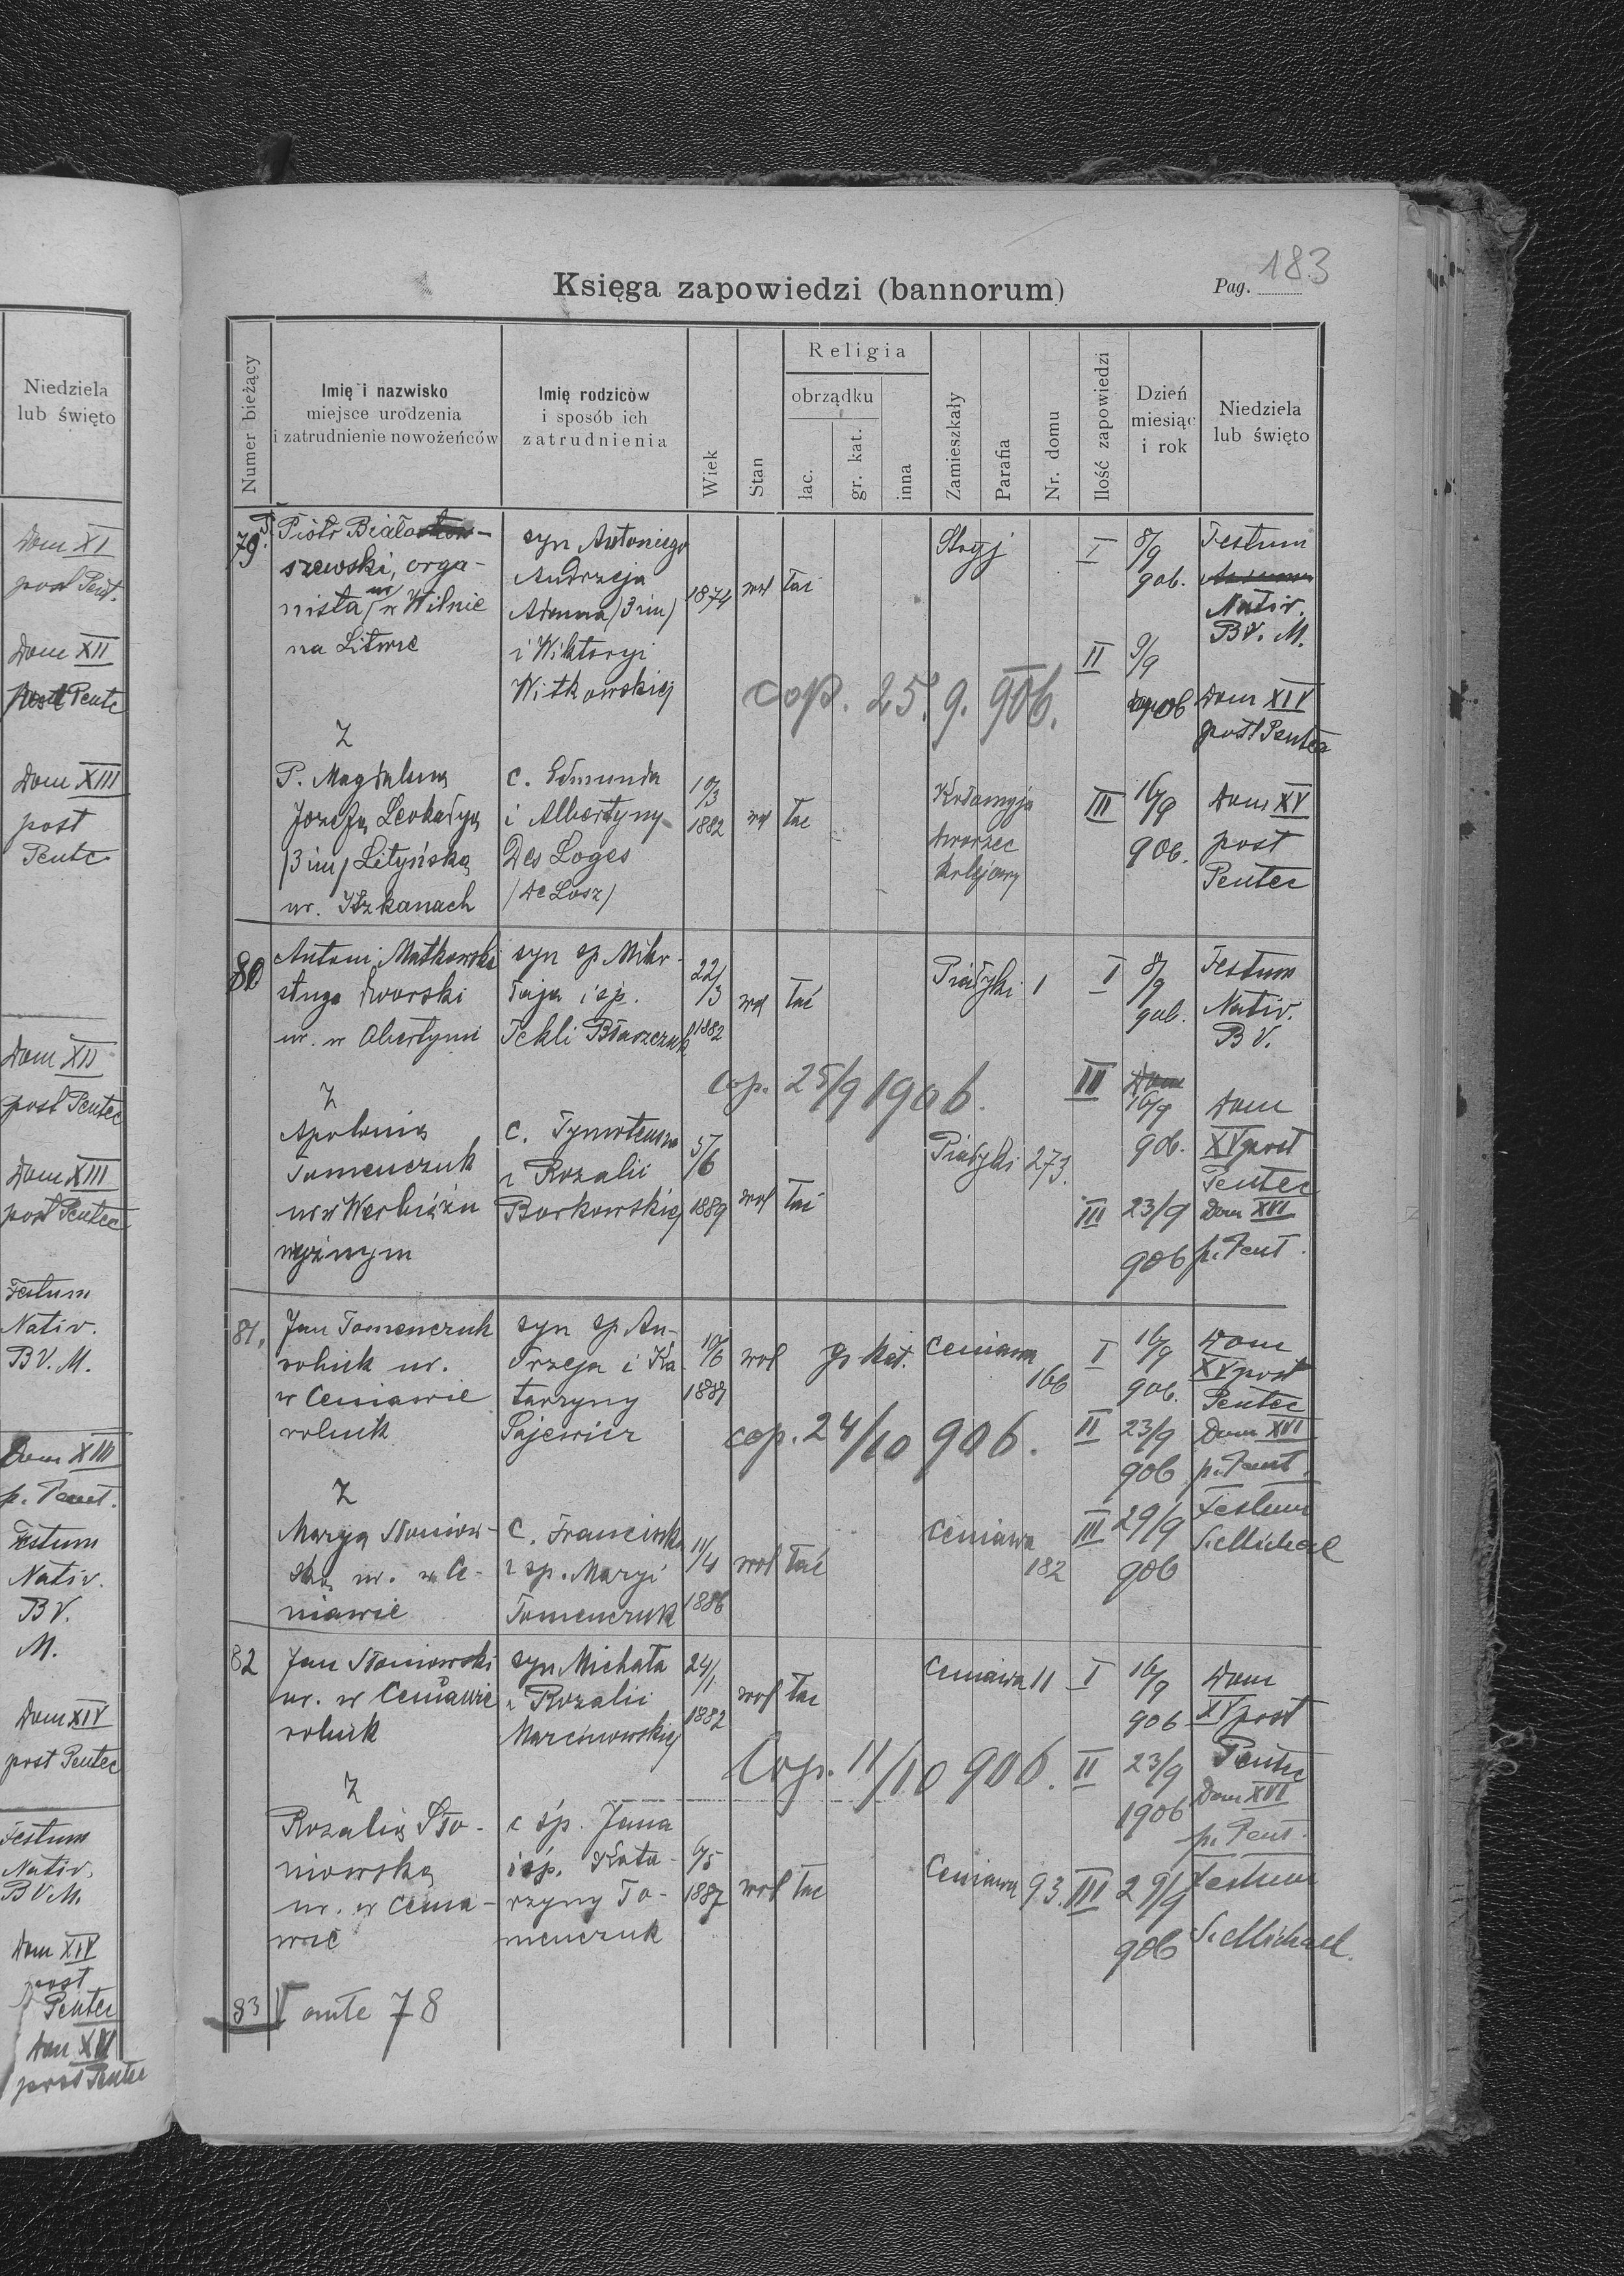 Niedziela
lub święto
Dom XI
post Pent.
Dom XII
post Pentc
Dom XIII
post
Pentc
Dom XII
post Pentec
Dom XIII
post Pentec
Festum
Nativ.
BV. M.
Dom XIII
p. Pent.
Festum
Nativ.
BV.
M.
Dom XIV
post Pentec
Festum
Nativ.
BVM.
Dom XIV
post
Pentec
Dom XVI
post Pentec
183
Księga zapowiedzi (bannorum)
Pag.
Numer bieżący
Imię i nazwisko
miejsce urodzenia
i zatrudnienie nowożeńców
Imię rodziców
i sposób ich
zatrudnienia
Wiek
Stan
Religia
obrządku
łac.
gr. kat.
inna
Zamieszkały
Parafia
Nr. domu
Ilość zapowiedzi
Dzień
miesiąc
i rok
Niedziela
lub święto
79.
P. Piotr Biało-
szewski, orga-
nista, ur w Wilnie
na Litwie
syn Antoniego
Andrzeja
Adama (3 im)
i Wiktoryi
Witkowskiej
1874
wol
łać
Stryj
I
8/9
906.
Festum
Nativ.
BV. M.
II
9/9
906
Dom XIV
post Pentec
cop. 25. 9. 906.
Z
P. Magdaleną
Józefą Leokadyą
(3 im) Lityńską
ur. Iszkanach
c. Edmunda
i Albertyny
Des Loges
(de Losz)
10/3
1882
wol
łac
Kołomyja
dworzec
kolejowy
III
16/9
906.
Dom XV
post
Pentec
80
Antoni Matkowski
sługa dworski
ur. w Obertynie
syn sp Miko-
łaja i sp.
Tekli Błaszczuk
22/3
1882
wol
łać
Piadyki 1
I
8/9
906.
Festum
Nativ.
BV.
cop. 25/9 1906.
III
Dom
16/9
906.
Dom
XV post
Pentec
Z
Apolonią
Tomenczuk
ur w Werbiążu
wyżnym
c. Tymoteusza
i Rozalii
Borkowskiej
5/6
1889
wol
łać
Piadyki 273.
III
23/9
906
Dom XVI
p. Pent.
81.
Jan Tomenczuk
rolnik ur.
w Ceniawie
rolnik
syn sp An-
drzeja i Ka
tarzyny
Sajewicz
10/6
wol
gr kat.
Ceniawa
166
I
16/9
906.
Dom
XV post
Pentec
cop. 24/10 906.
II
23/9
906
Dom XVI
p. Pent.
Z
Maryą Słoniow-
ską ur. w Ce-
niawie
c. Franciszka
i sp. Maryi
Tomenczuk
11/4
1886
wol
łać
Ceniawa
182
III
29/9
906
Festum
S. Michael
82
Jan Słoniowski
ur. w Ceniawie
rolnik
syn Michała
i Rozalii
Marcinowskiej
24/1
1882
wol
łac
Ceniawa 11
I
16/9
906
Dom
XV post
Pentec
Cop. 11/10 906.
II
23/9
1906
Dom XVI
p. Pent.
Z
Rozalią Sło-
niowską
ur. w Cenia-
wie
c śp. Jana
i śp. Kata-
rzyny To-
menczuk
6/5
1887
wol
łac
Ceniawa 93.
III
29/9
906
Festum
S. Michael.
83
V ante 78